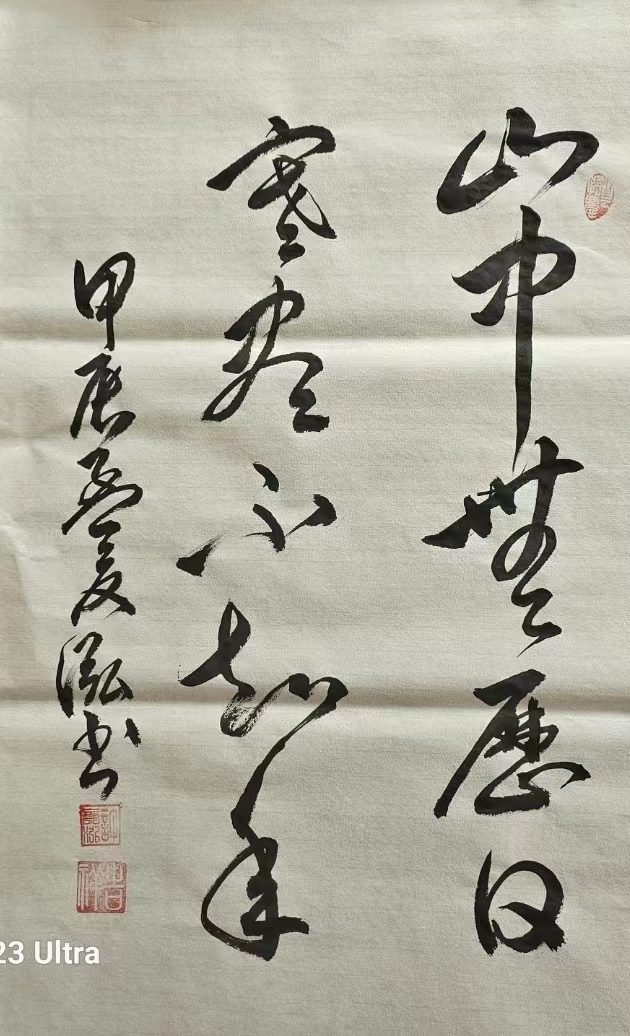 山中無歷日
寒盡不知年
甲辰孟夏泓书
23 Ultra